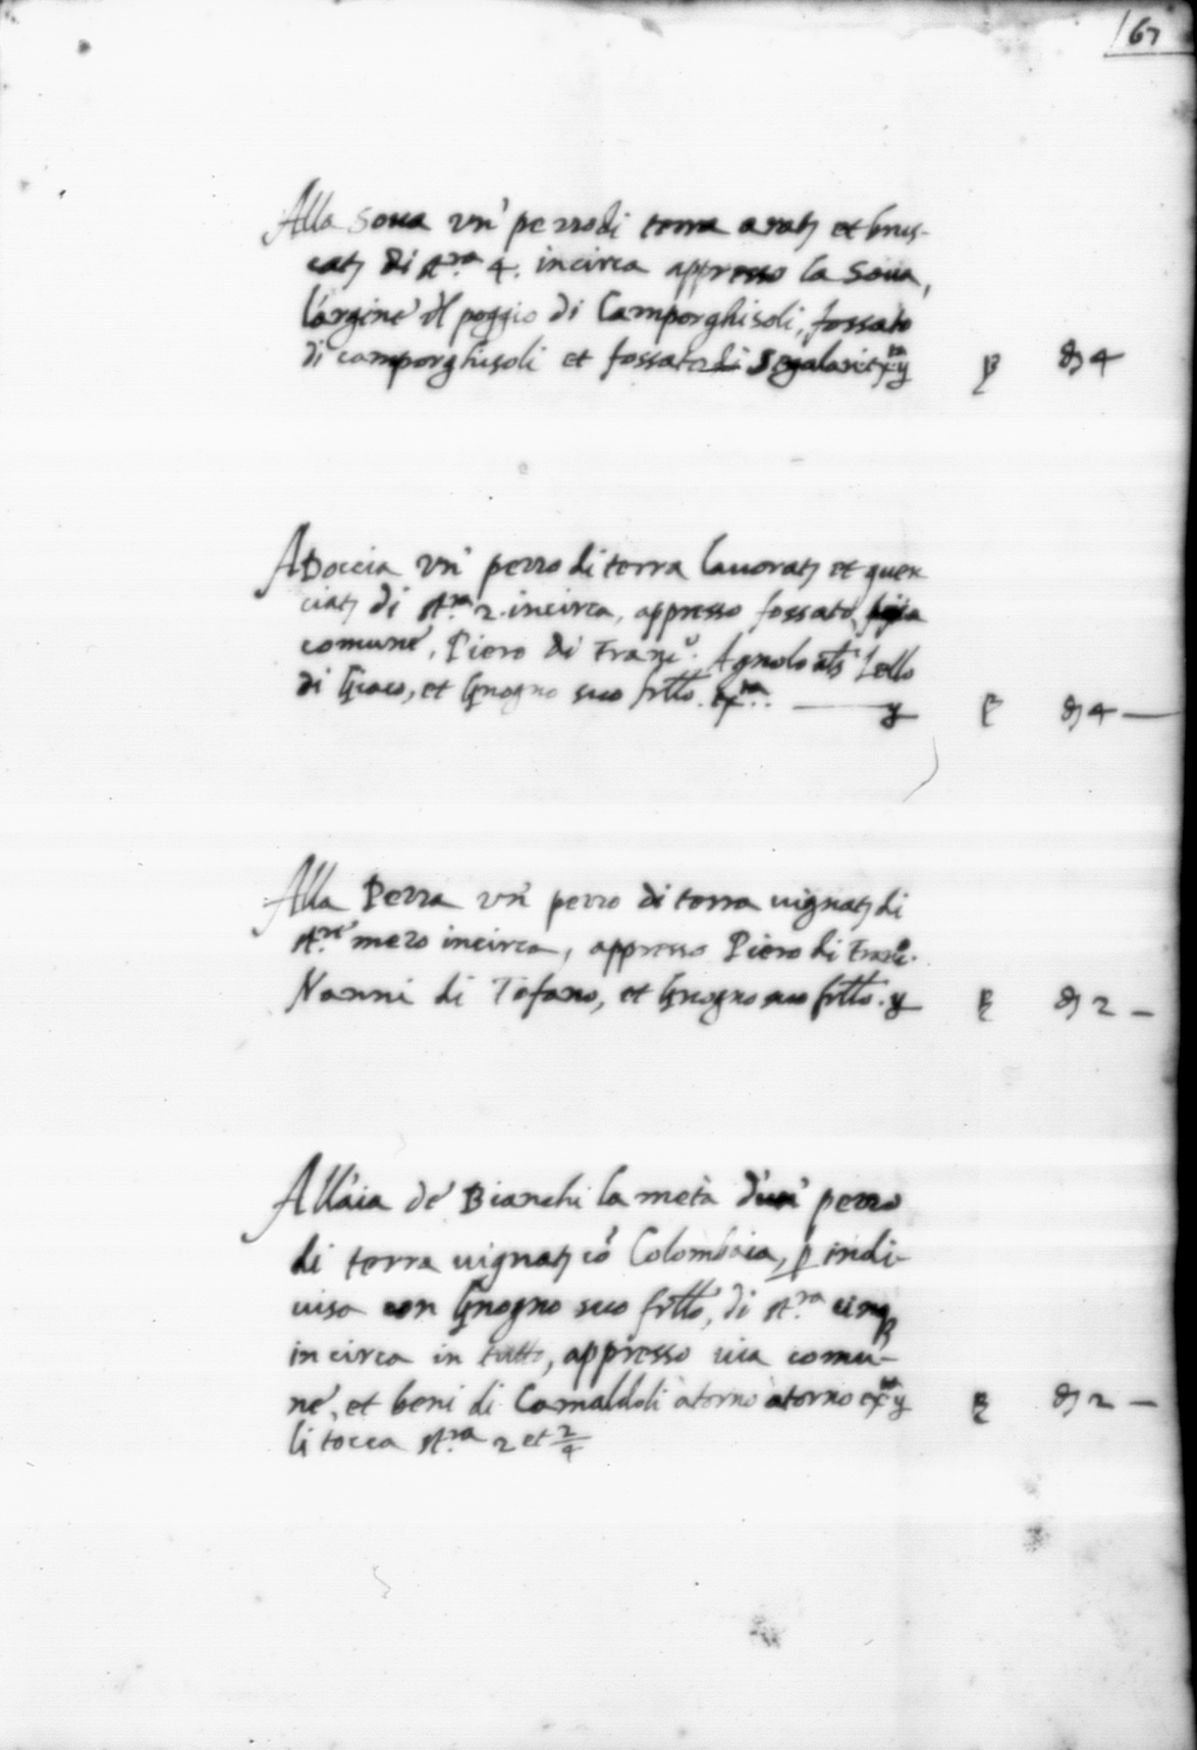 67
Alla Soua un' pezzo di terra arat3 et brus-
cat3 di st.ra 4. incirca appresso la Soua,
l'argine del poggio di Camporghisoli, fossato
di camporghisoli et fossato di
4
A Doccia un' pezzo di terra lauorat3 et quer
ciat3 di st.ra 2. incirca, appresso fossato, uia
comune, Piero di Franc.o Agnolo als Lello
di et Gnogno suo frtllo.
4
Alla Pezza un' pezzo di terra uignat3 di
st.re mezo incirca, appresso Piero di Franc.o
Nanni di Tofano, et Gnogno suo frtllo.
2
All'aia de' Bianchi la metà d'un' pezzo
di terra uignat3 cõ Colombaia, p indi-
uiso con Gnogno suo frtllo, di st.ra cinq
in circa in tutto, appresso uia comu-
ne, et beni di Camaldoli àtorno àtorno
2
li tocca st.ra 2 et 2/4